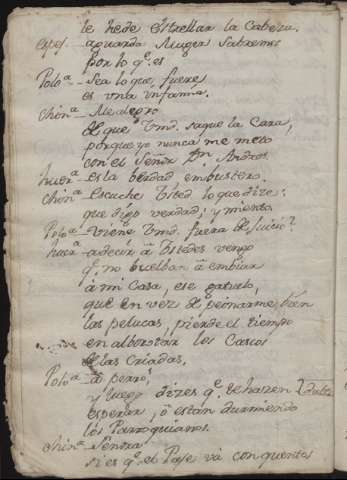 le hede estrellar la Cabeza.
espos.- aguarda Muger sabremos
por lo q.e es
Polo.a - sea lo que fuere
es vna infamia.
Chin.a - Me alegro
de que Vmd. saque la Cara,
porque yo nunca me meto
con el Señor Dn. Andres
huer.a - es la berdad embustero.
Chin.a - escuche Vsted lo que dize:
que digo verdad; y miento.
Polo.a - viene Vmd. fuera de juicio?
huer.a - a decir â Vstedes vengo
q.e no buelban â embiar
â mi Casa, ese gatuelo,
que en vez de peinarme bien
las pelucas, pierde el tiempo
en alborotar los Cascos
de las Criadas.
Polo.a - â perro;
y luego dizes q.e te hazen
esperar, ô están durmiendo
los Parroquianos.
Chin.a - Señora
si es q.e el Paje va con quentos